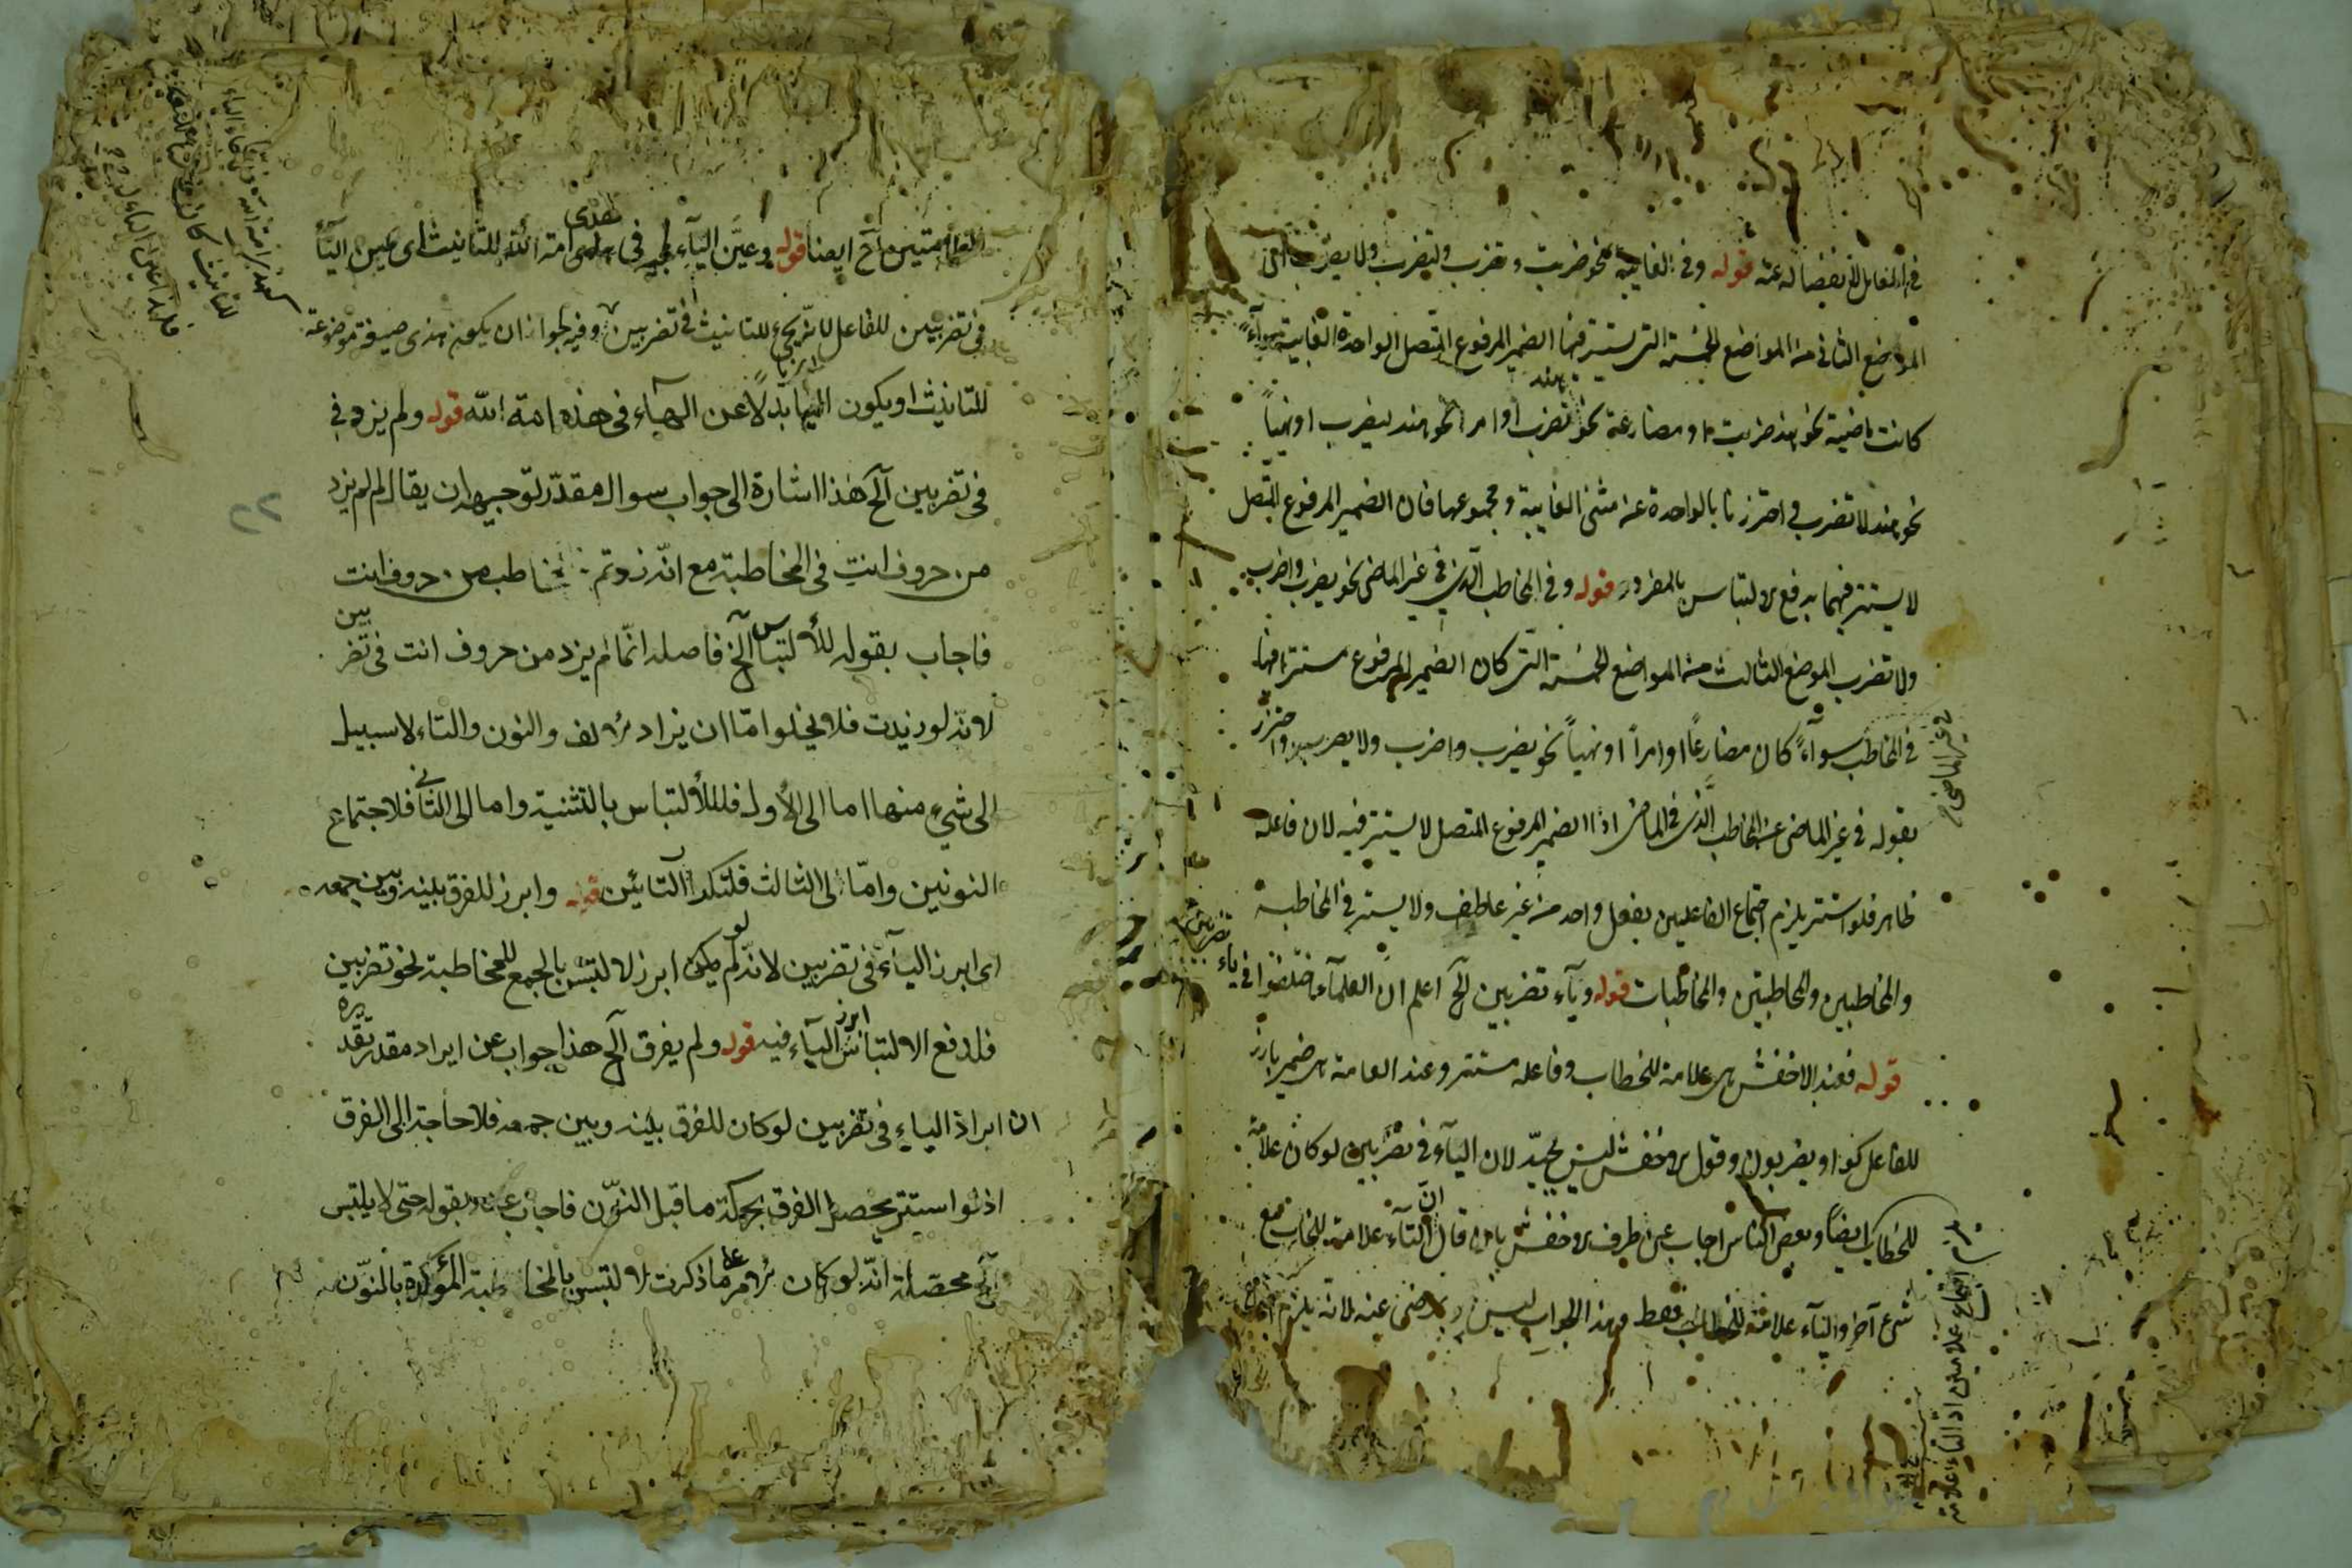 في الفاعل لانفصاله عنه قوله وفي الغايبة نحو ضربت وتضرب ولتضرب ولا تضرب
الموضع الثاني من المواضع الخمسة التي يستتر فيها الضمير المرفوع المتصل الواحدة الغايبة سوآء
كانت ماضية نحو هند ضربت او مضارعة نحو هند تضرب او امرا نحو هند لتضرب او نهياً
نحو هند لا تضرب احترزنا بالواحدة عن مثنى الغايبة ومجموعها فان الضمير المرفوع المتصل
لا يستتر فيهما بدفع الالتباس بالمفرد قوله وفي المخاطب الذي في غير الماضي نحو تضرب واضرب
ولا تضرب الموضع الثالث من المواضع الخمسة التي كان الضمير المرفوع مستترا فيها
في المخاطب سوآءً كان مضارعاً او امراً او نهياً نحو تضرب واضرب ولا تضرب واحترز
بقوله في غير الماضي عن المخاطب الذي في الماضي اذ الضمير المرفوع المتصل لا يستتر فيه لان فاعله
ظاهر فلو استتر يلزم اجتماع الفاعلين بفعل واحد من غير عاطف ولا يستتر في المخاطبة
والمخاطبين والمخاطبتين والمخاطبات قوله ويآء تضربين الخ اعلم ان العلمآء اختلفوا في ياء تضربين
قوله فعند الاخفش هي علامة للخطاب وفاعله مستتر وعند العامة هي ضمير بارز
للفاعل كواو يضربون وقول الاخفش ليس بجيّد لان اليآء في تضربين لو كان علامة
للخطاب ايضاً وبعض الناس اجاب عن طرف الاخفش بان قال ان التآء علامة للخطاب مع
شيء آخر واليآء علامة للخطاب فقط وهذا الجواب ليس بمرضى عنه لانه يلزم
في غير الماضي
اجتماع علامتين اذ التاء علامة
العلامتين الخ ايضا قوله وعيّن اليآء لمجيئه في هذى امة الله للتانيث اى عين اليآء
في تضربين للفاعل لانه يجيء للتانيث في تضربين وفيه لجواز ان يكون هذى صيغة موضوعة
للتانيث او يكون اليها بدلاً عن الهآء في هذه امة الله قوله ولم يزد في
في تضربين الخ هذا اشارة الى جواب سوال مقدّر توجيهه ان يقال لم لم يزد
من حروف انتِ في المخاطبة مع انّه زدتم مخاطب من حروف انت
فاجاب بقوله للالتباس الخ فاصله انّما لم يزد من حروف انت في تضربين
لانه لو زيدت فلا يخلو امّا ان يزاد الالف والنون والتاء لا سبيل
الى شيء منها اما الى الأول فللألتباس بالتثنية واما الى الثاني فلاجتماع
النونين وامّا الى الثالث فلتكرار التائين قوله وابرز للفرق بينه وبين جمعه
اى ابرز اليآء في تضربين لانه لو لم يكن ابرز لالتبس بالجمع للمخاطبة نحو تضربين
فلدفع الالتباس ابرز اليآء فيه قوله ولم يفرق الخ هذا جواب عن ايراد مقدر تقديره
ان ابراز الياء في تضربين لو كان للفرق بينه وبين جمعه فلا حاجة الى الفرق
اذ لو استتر يحصل الفرق بحركة ما قبل النون فاجاب عنه بقوله حتى لا يلتبس
الخ محصله انه لو كان الامر على ما ذكرت لالتبس بالمخاطبة المؤكدة بالنون
٢٢